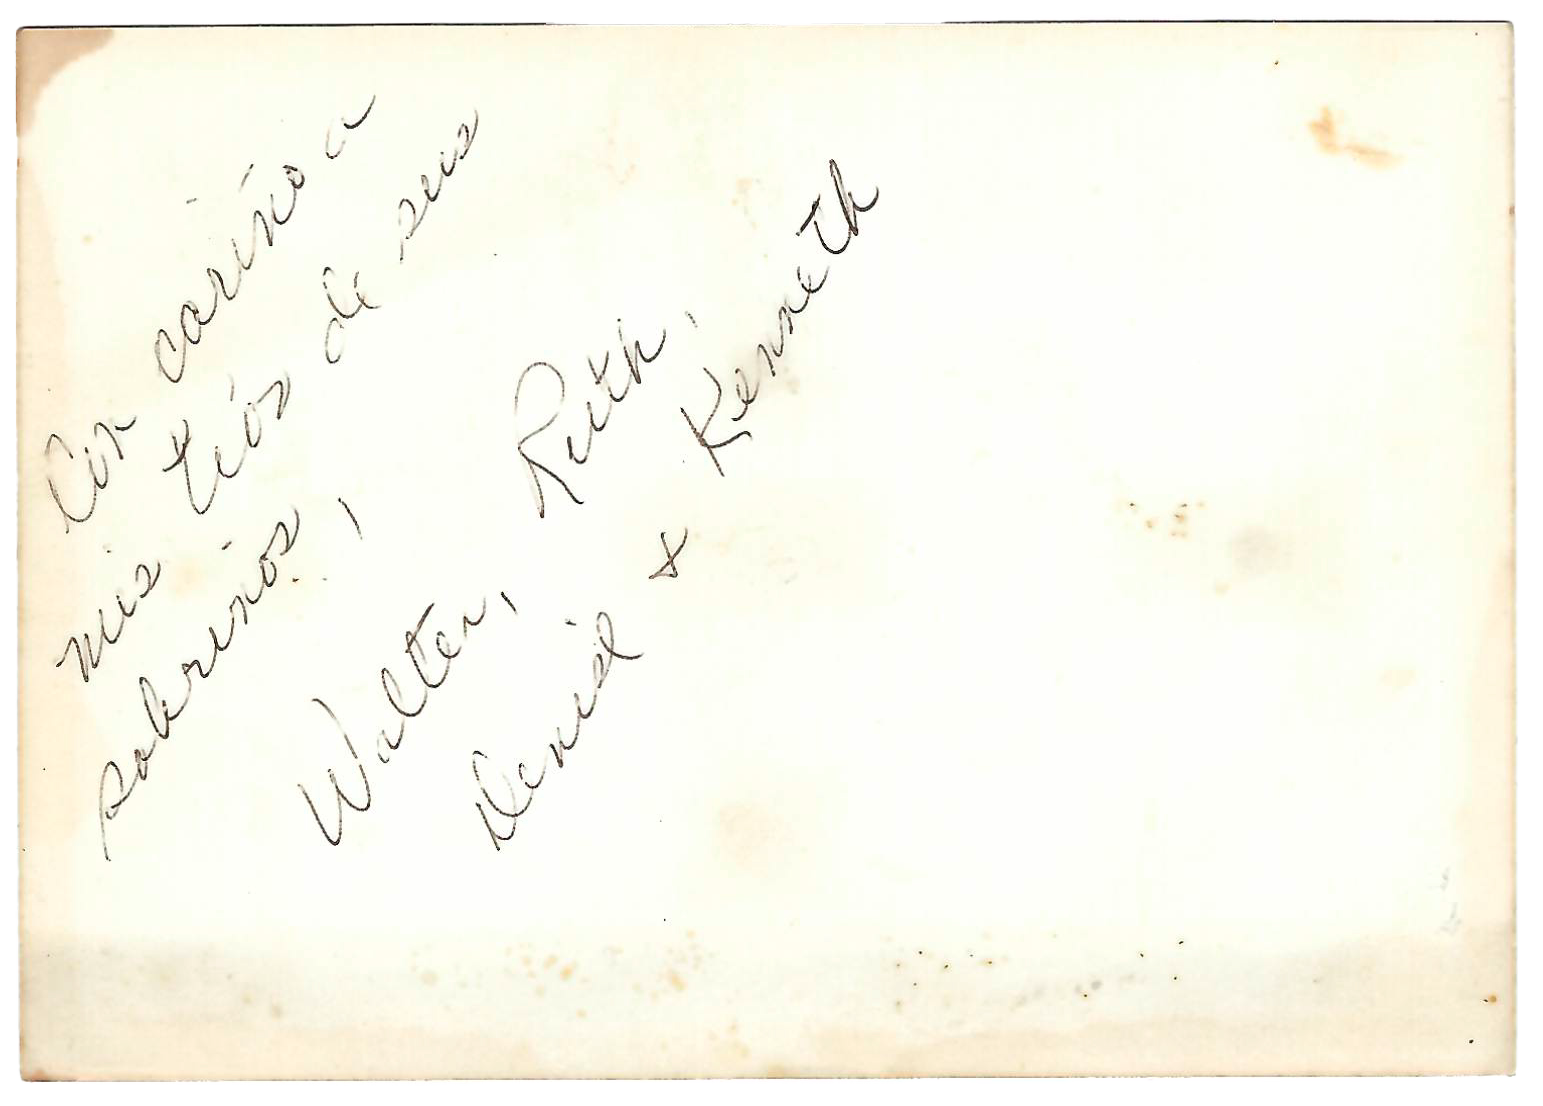 Con cariño a
mis tiós de sus
sobrinos,
Walter, Ruth,
Deniel & Kenneth